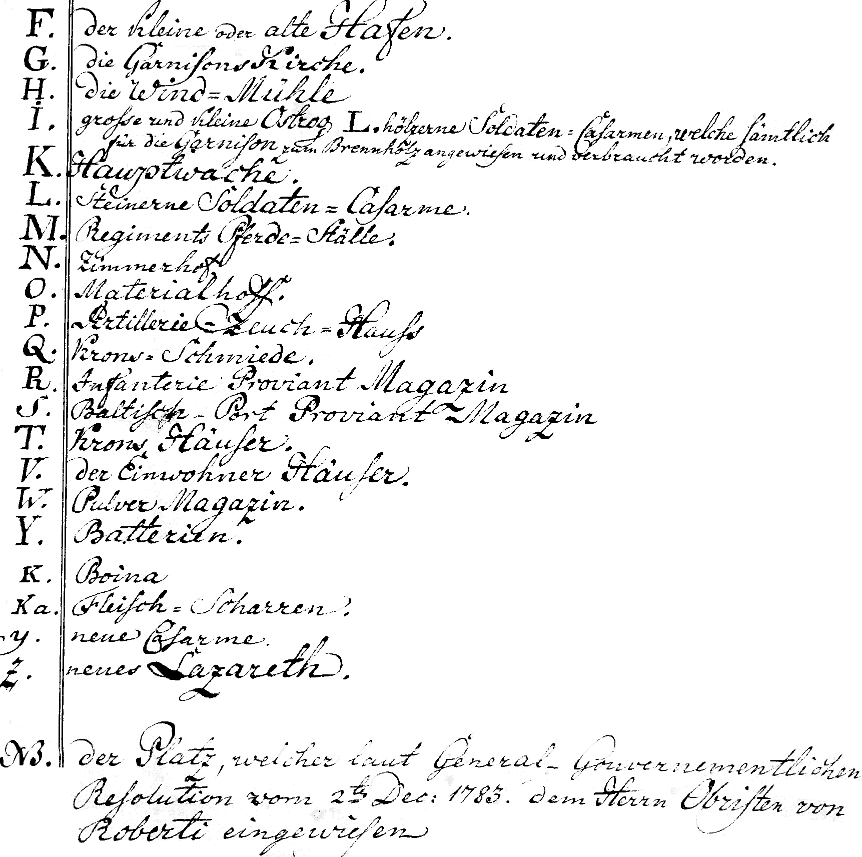 F. der kleine oder alte Hafen.
G. die Garnisons Kirche.
H. die Wind=Mühle
I. grosse und kleine Ostrog L. hölzerne Soldaten=Casarmen, welche sämtlich
für die Garnison zum Brennholz angewiesen und verbraucht worden.
K. Hauptwache.
L. Steinerne Soldaten=Casarme.
M. Regiments Pferde=Ställe.
N. Zimmerhof
O. Materialhoff.
P. Artillerie=Zeuch=Hauss
Q. Krons=Schmiede.
R. Infanterie Proviant Magazin
S. Baltisch-Port Proviant Magazin
T. Krons Häuser.
V. der Einwohner Häuser.
W. Pulver Magazin.
Y. Batterien.
K. Boina
Ka. Fleisch=Scharren.
y. neue Casarme.
z. neues Lazareth.
NB. der Platz, welcher laut General-Gouvernementlichen
Resolution vom 2ten Dec: 1783. dem Herrn Obristen von
Roberti eingewiesen